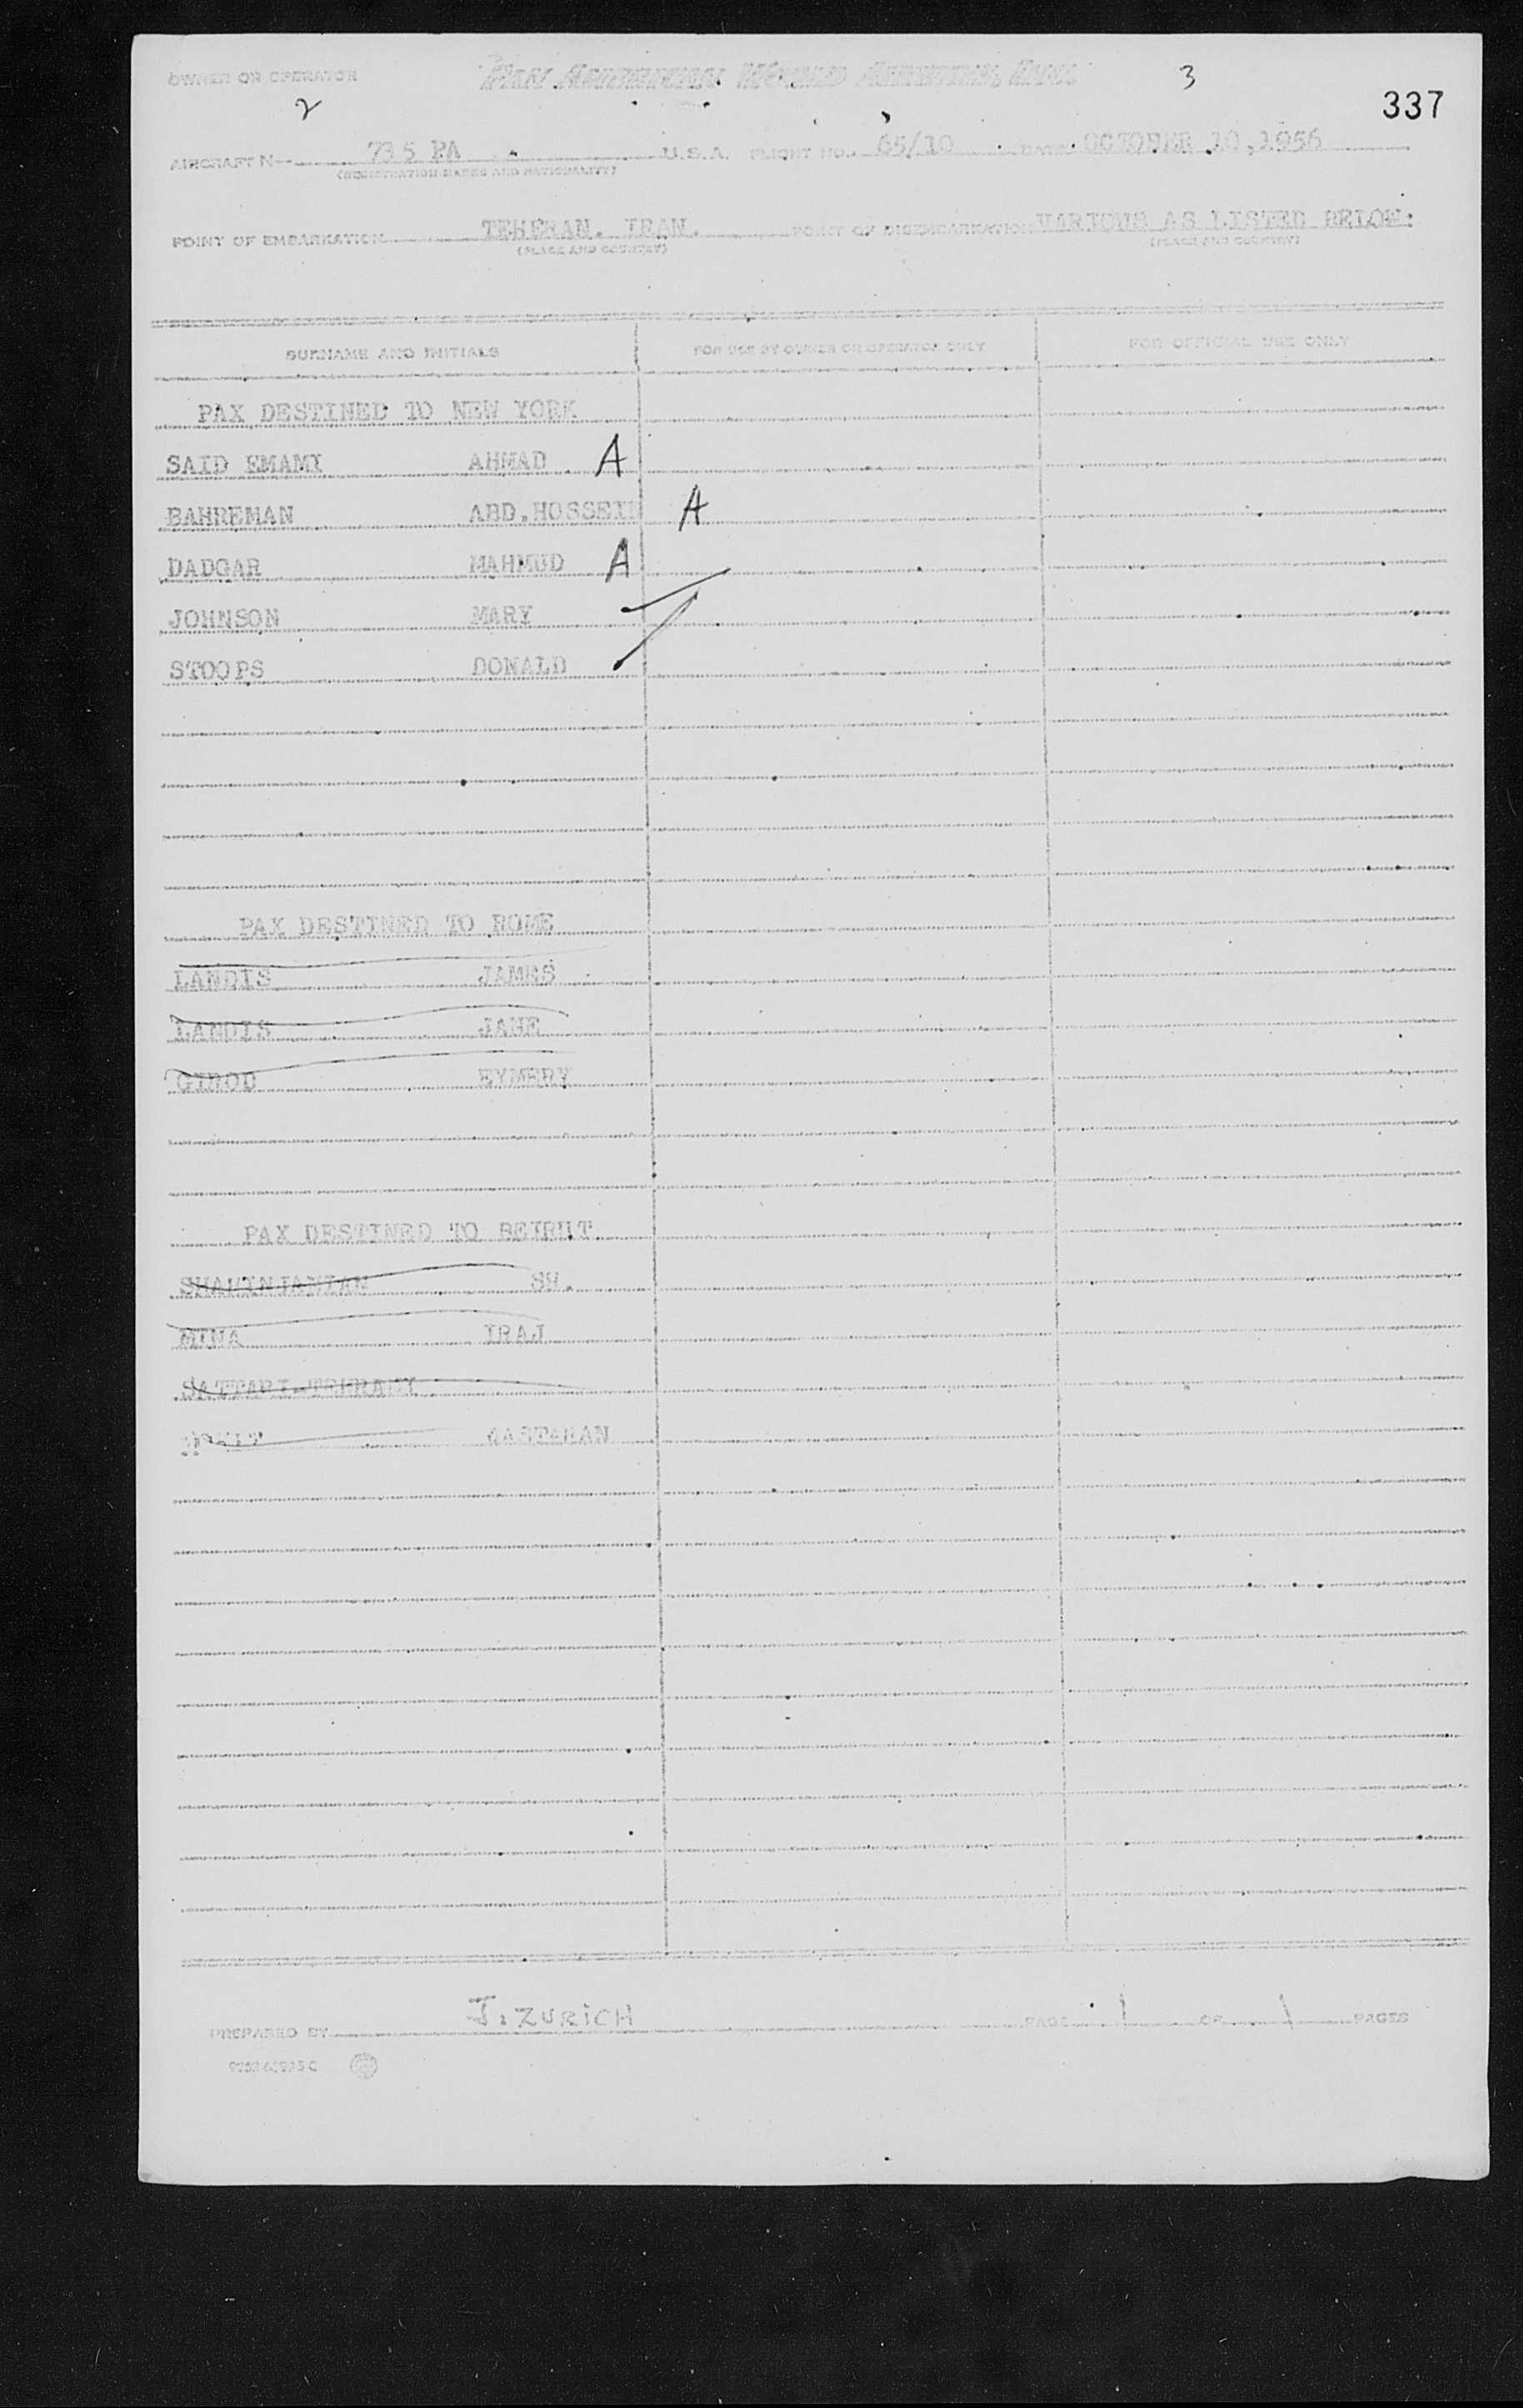 OWNER OR OPERATOR PAN AMERICAN WORLD AIRWAYS, INC. 3
2 337
AIRCRAFT N— 735 PA U.S.A. FLIGHT NO. 65/10 DATE OCTOBER 10,1956
(REGISTRATION MARKS AND NATIONALITY)
POINT OF EMBARKATION TEHERAN. IRAN. POINT OF DISEMBARKATION VARIOUS AS LISTED BELOW:
(PLACE AND COUNTRY) (PLACE AND COUNTRY)
SURNAME AND INITIALS FOR USE BY OWNER OR OPERATOR ONLY FOR OFFICIAL USE ONLY
PAX DESTINED TO NEW YORK
SAID EMAMI AHMAD A
BAHREMAN ABD.HOSSEIN A
DADGAR MAHMUD A
JOHNSON MARY
STOOPS DONALD
PAX DESTINED TO ROME
LANDIS JAMES
LANDIS JANE
GIROD EYMERY
PAX DESTINED TO BEIRUT
SHAHINJANIAN SH.
MINA IRAJ
SATTARI-TEHRANY
PREPARED BY J. ZURICH PAGE 1 OF 1 PAGES